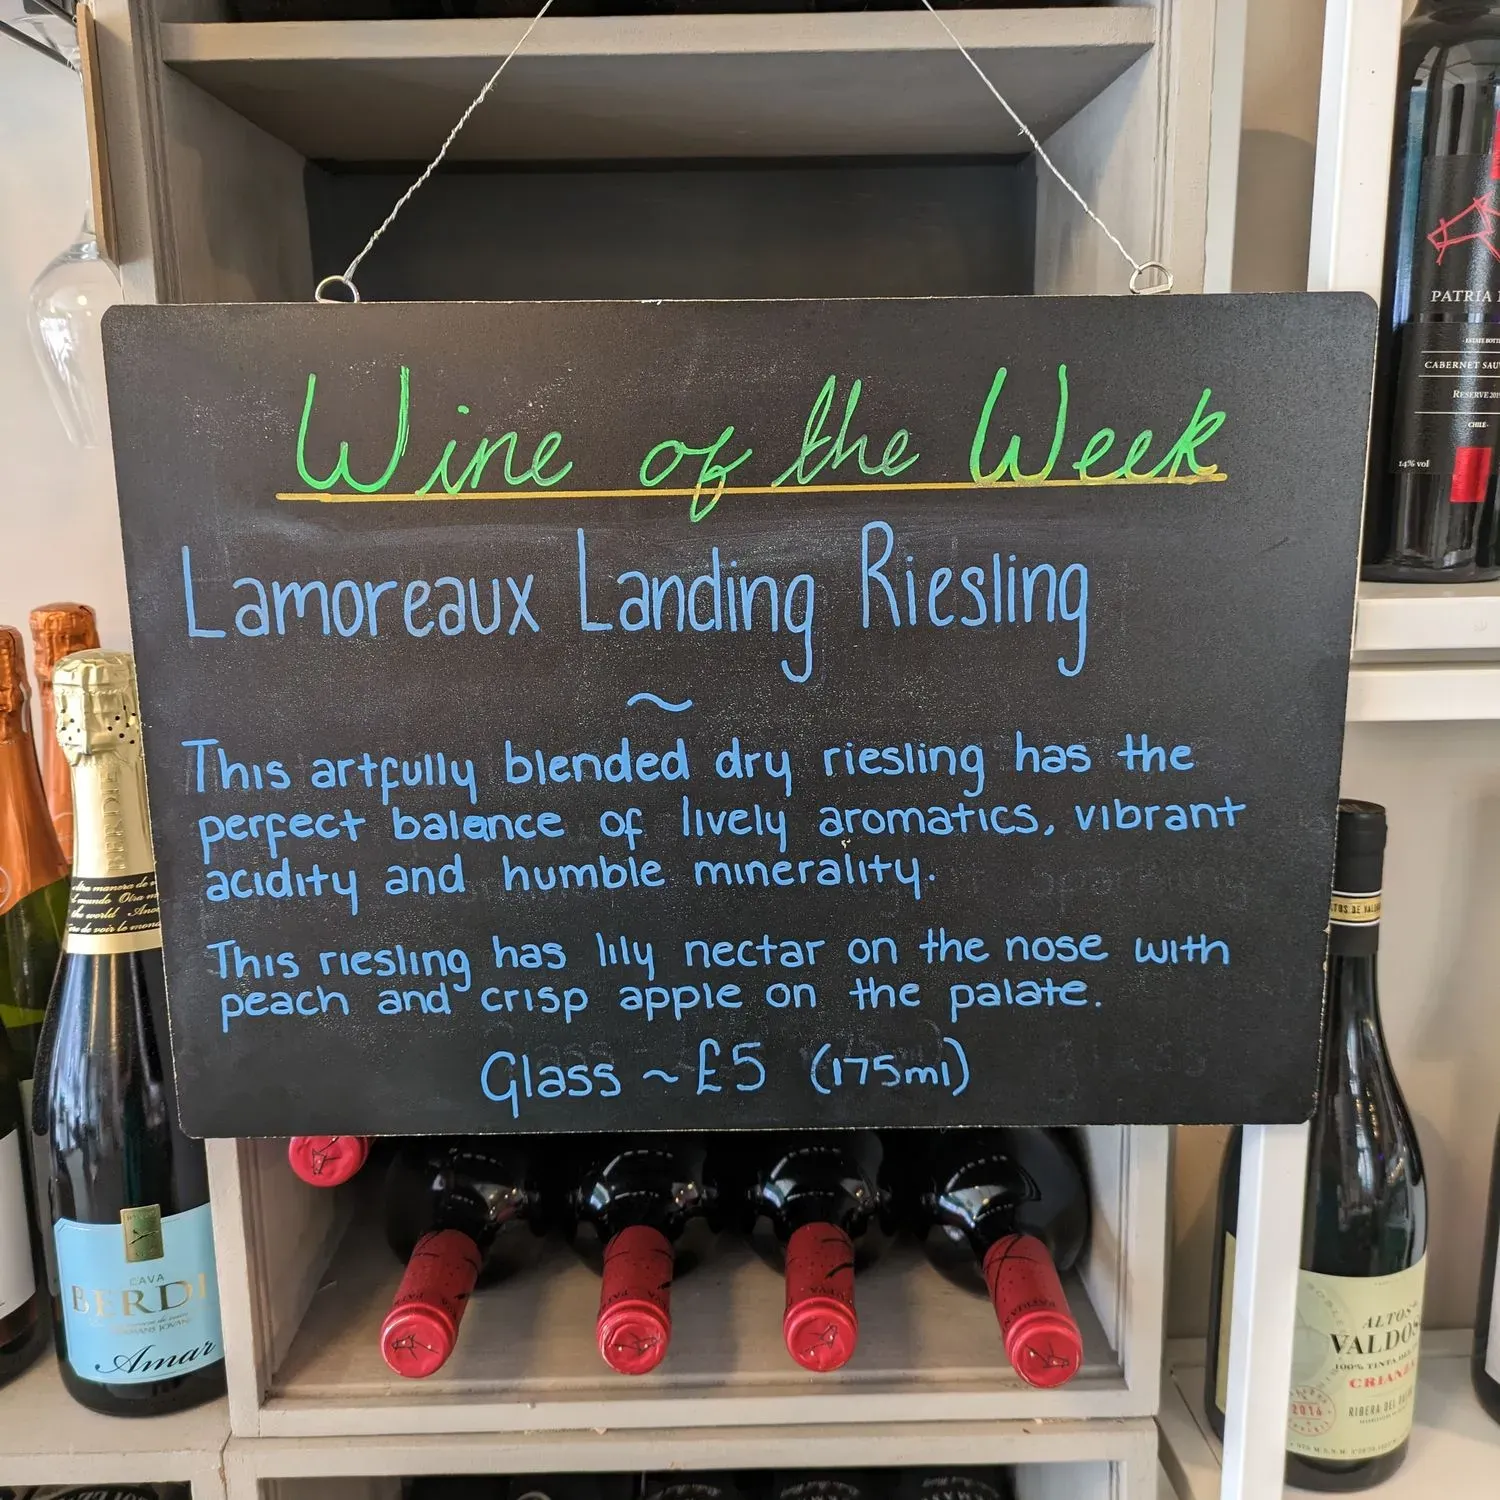 Wine of the Week
Lamoreaux Landing Riesling
~
This artfully blended dry riesling has the
perfect balance of lively aromatics, vibrant
acidity and humble minerality.
This riesling has lily nectar on the nose with
peach and crisp apple on the palate.
Glass ~ £5 (175ml)
PATRIA
CABERNET
RESERVE
CHILE
14% vol
CAVA
BERDI
Amar
ALTOS
VALDO
100% TINTA DEL
CRIANZA
2016
RIBERA DEL